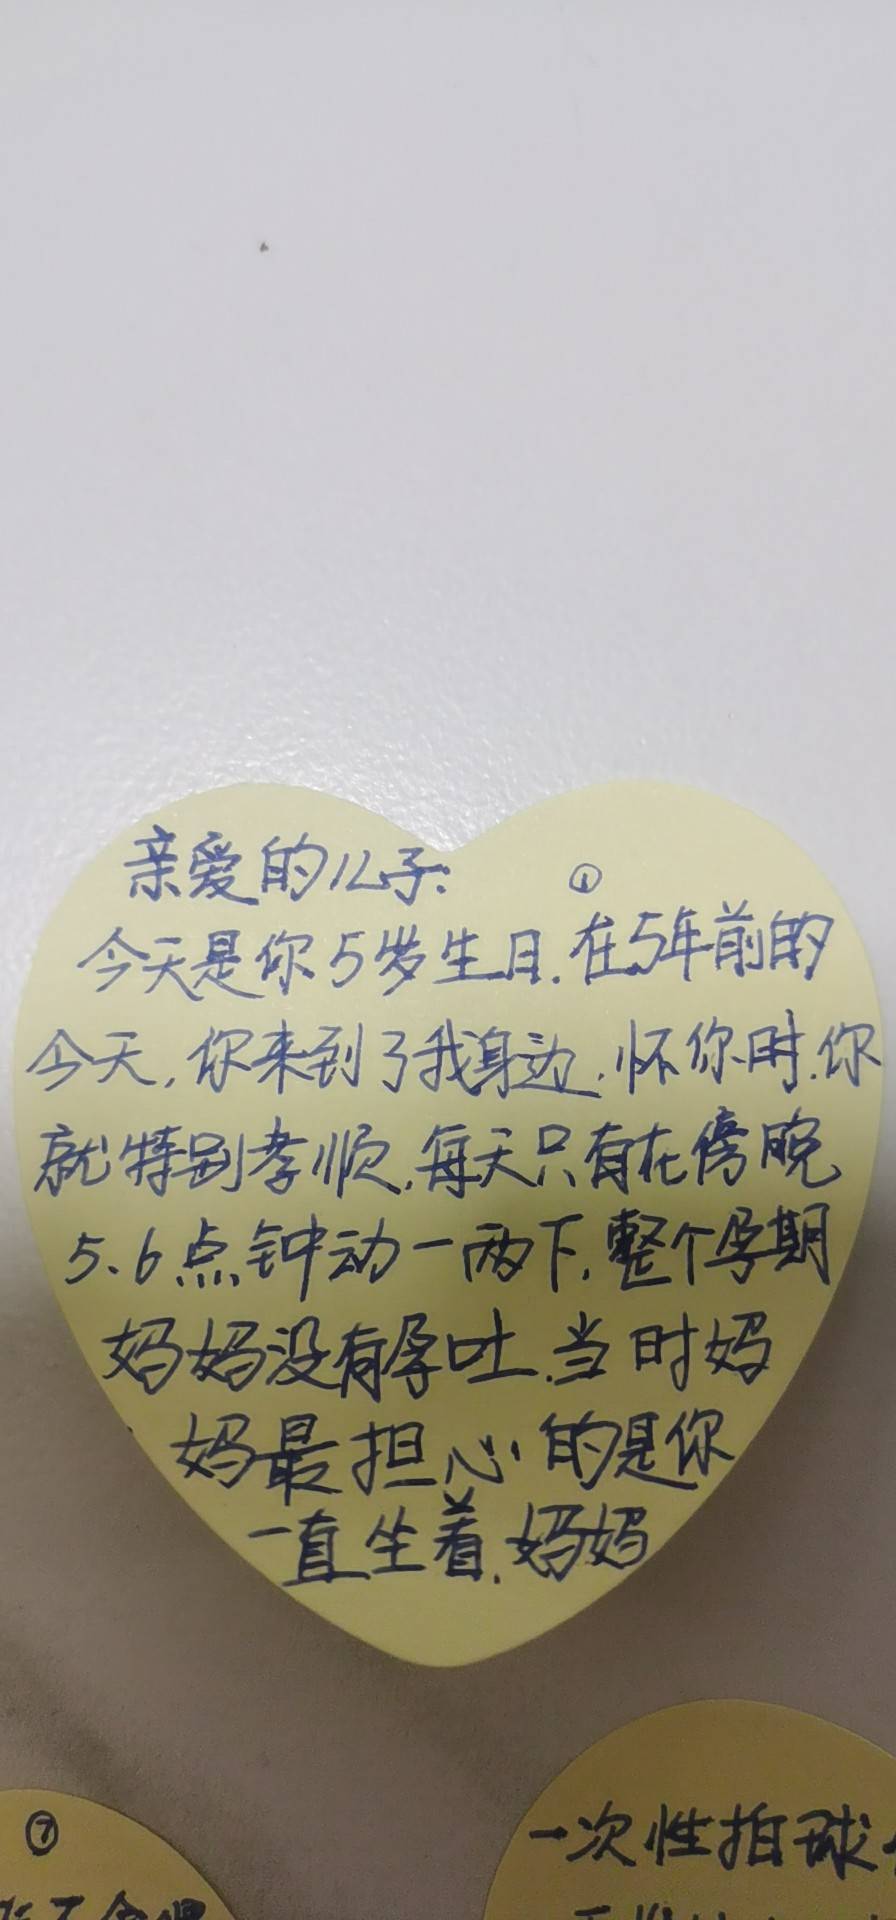 亲爱的儿子: ①
今天是你5岁生日.在5年前的
今天,你来到了我身边.怀你时.你
就特别孝顺,每天只有在傍晚
5、6点钟动一两下,整个孕期
妈妈没有孕吐.当时妈
妈最担心的是你
一直坐着.妈妈
⑦
一次性拍球